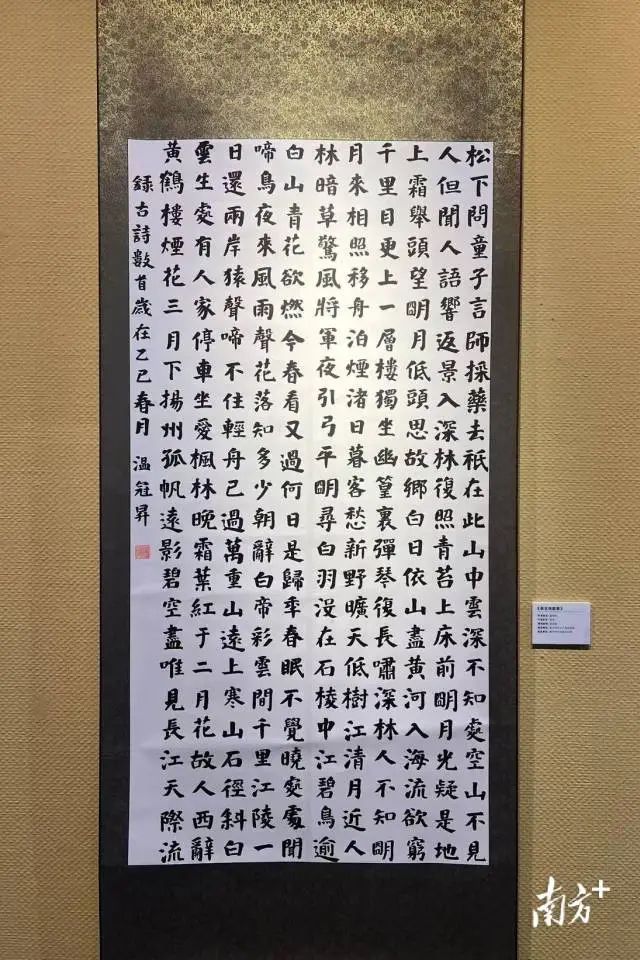 松下問童子言師採藥去祇在此山中雲深不知處空山不見
人但聞人語響返景入深林復照青苔上床前明月光疑是地
上霜舉頭望明月低頭思故鄉白日依山盡黃河入海流欲窮
千里目更上一層樓獨坐幽篁裏彈琴復長嘯深林人不知明
月來相照移舟泊煙渚日暮客愁新野曠天低樹江清月近人
林暗草驚風將軍夜引弓平明尋白羽沒在石棱中江碧鳥逾
白山青花欲燃今春看又過何日是歸年春眠不覺曉處處聞
啼鳥夜來風雨聲花落知多少朝辭白帝彩雲間千里江陵一
日還兩岸猿聲啼不住輕舟已過萬重山遠上寒山石徑斜白
雲生處有人家停車坐愛楓林晚霜葉紅于二月花故人西辭
黃鶴樓煙花三月下揚州孤帆遠影碧空盡唯見長江天際流
錄古詩數首歲在乙巳春月 溫冠昇
南方+